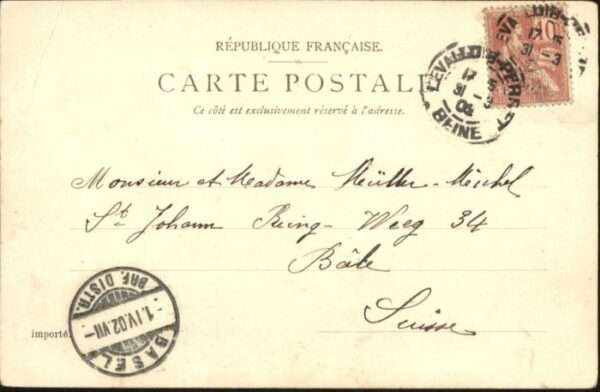 RÉPUBLIQUE FRANÇAISE.
CARTE POSTALE
Ce côté est exclusivement réservé à l'adresse.
LEVALLOIS-PERRET
17
31 -3
02
SEINE
Monsieur et Madame Müller-Mischel
St Johann Ring-Weeg 34
Bâle
Suisse
importé.
BASEL
1.IV.02.VII-
BRF. DISTR.